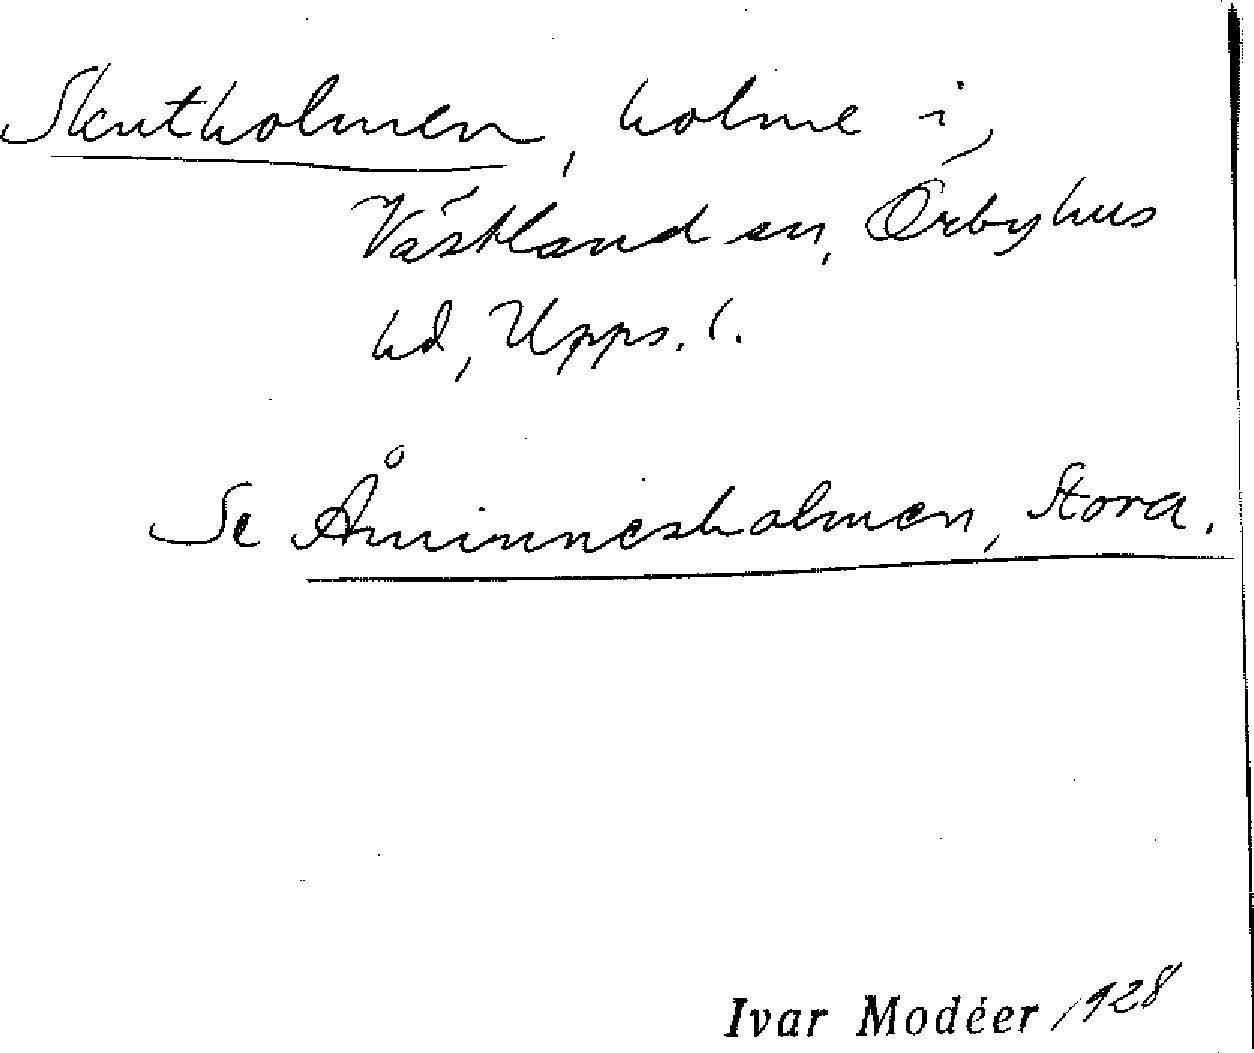 Skutholmen, holme i
Västland sn, Örbyhus
hd, Upps. l.
Se Åminnesholmen, Stora.
Ivar Modéer 1928